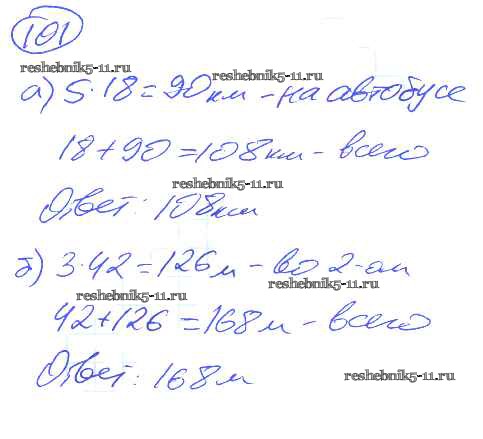 101
reshebnik5-11.ru
reshebnik5-11.ru
а) 5·18=90км - на автобусе
18+90=108км - всего
reshebnik5-11.ru
Ответ: 108км
б) 3·42=126м - во 2-ом
reshebnik5-11.ru
reshebnik5-11.ru
42+126=168м - всего
Ответ: 168м
reshebnik5-11.ru